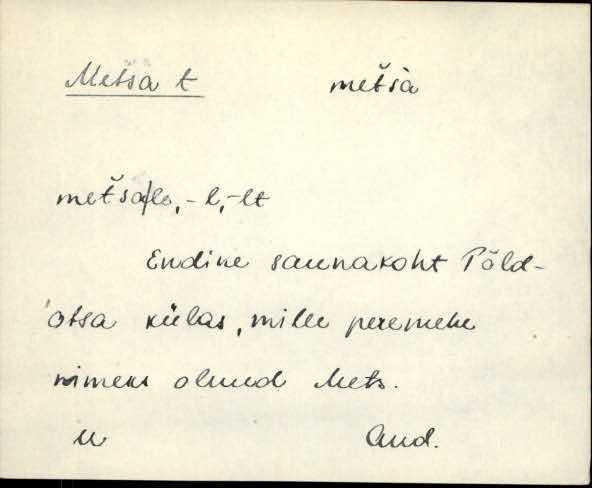 Metsa t metsà
metsa/le, -l, -lt
Endine saunakoht Põld-
otsa külas, mille peremehe
nimeks olnud Mets.
u Aud.